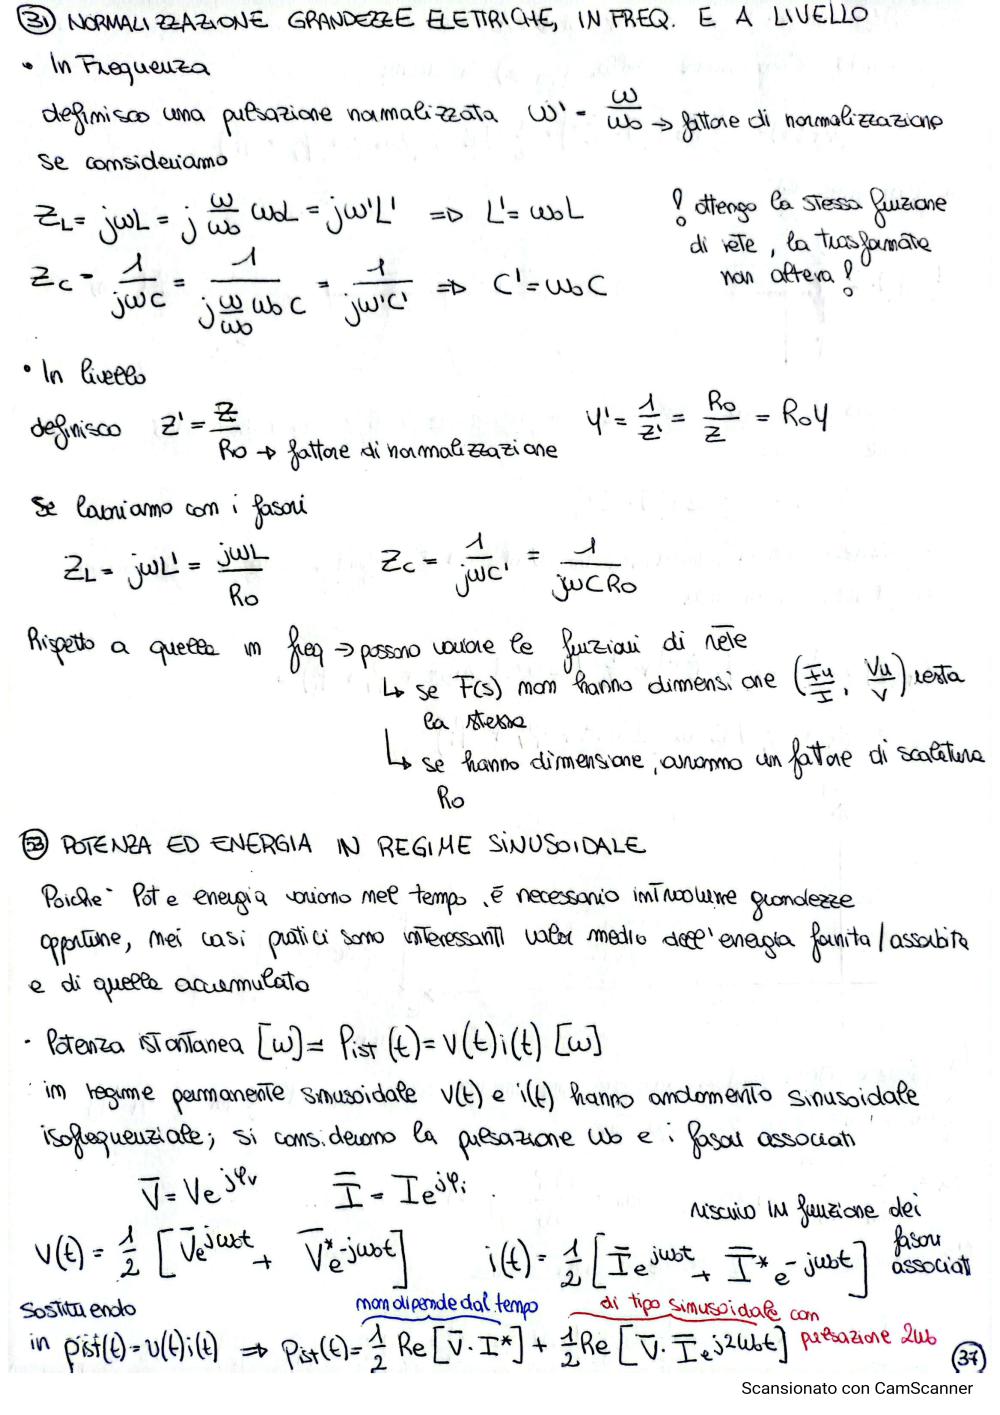 31 NORMALIZZAZIONE GRANDEZZE ELETTRICHE, IN FREQ. E A LIVELLO
• In Frequenza
definisco una pulsazione normalizzata ω' = ω/ω₀ → fattore di normalizzazione
se consideriamo
Z_L = jωL = j ω/ω₀ ω₀L = jω'L' => L' = ω₀L
! ottengo la stessa funzione
di rete, la trasformata
non altera !
Z_C = 1/jωC = 1/(j ω/ω₀ ω₀C) = 1/jω'C' => C' = ω₀C
• In livello
definisco Z' = Z/R₀ → fattore di normalizzazione Y' = 1/Z' = R₀/Z = R₀Y
Se lavoriamo con i fasori
Z_L = jωL' = jωL/R₀ Z_C = 1/jωC' = 1/jωCR₀
Rispetto a quella in freq → possono variare le funzioni di rete
↳ se F(s) non hanno dimensione (Iu/I, Vu/V) resta
la stessa
↳ se hanno dimensione, avranno un fattore di scalatura
R₀
POTENZA ED ENERGIA IN REGIME SINUSOIDALE
Poiche' Pot e energia variano nel tempo, è necessario introdurre grandezze
opportune, nei casi pratici sono interessanti valor medio dell'energia fornita/assorbita
e di quella accumulata
· Potenza istantanea [W] = Pist(t) = v(t)i(t) [W]
in regime permanente sinusoidale v(t) e i(t) hanno andamento sinusoidale
isofrequenziale; si considerano la pulsazione ω₀ e i fasori associati
V̅ = Ve^jφv I̅ = Ie^jφi
riscrivo IN funzione dei
fasori
associati
v(t) = 1/2 [V̅e^jω₀t + V̅*e^-jω₀t] i(t) = 1/2 [I̅e^jω₀t + I̅*e^-jω₀t]
Sostituendo
non dipende dal tempo
di tipo sinusoidale con
pulsazione 2ω₀
in pist(t) = v(t)i(t) => Pist(t) = 1/2 Re[V̅·I*] + 1/2 Re[V̅·I̅e^j2ω₀t]
37
Scansionato con CamScanner